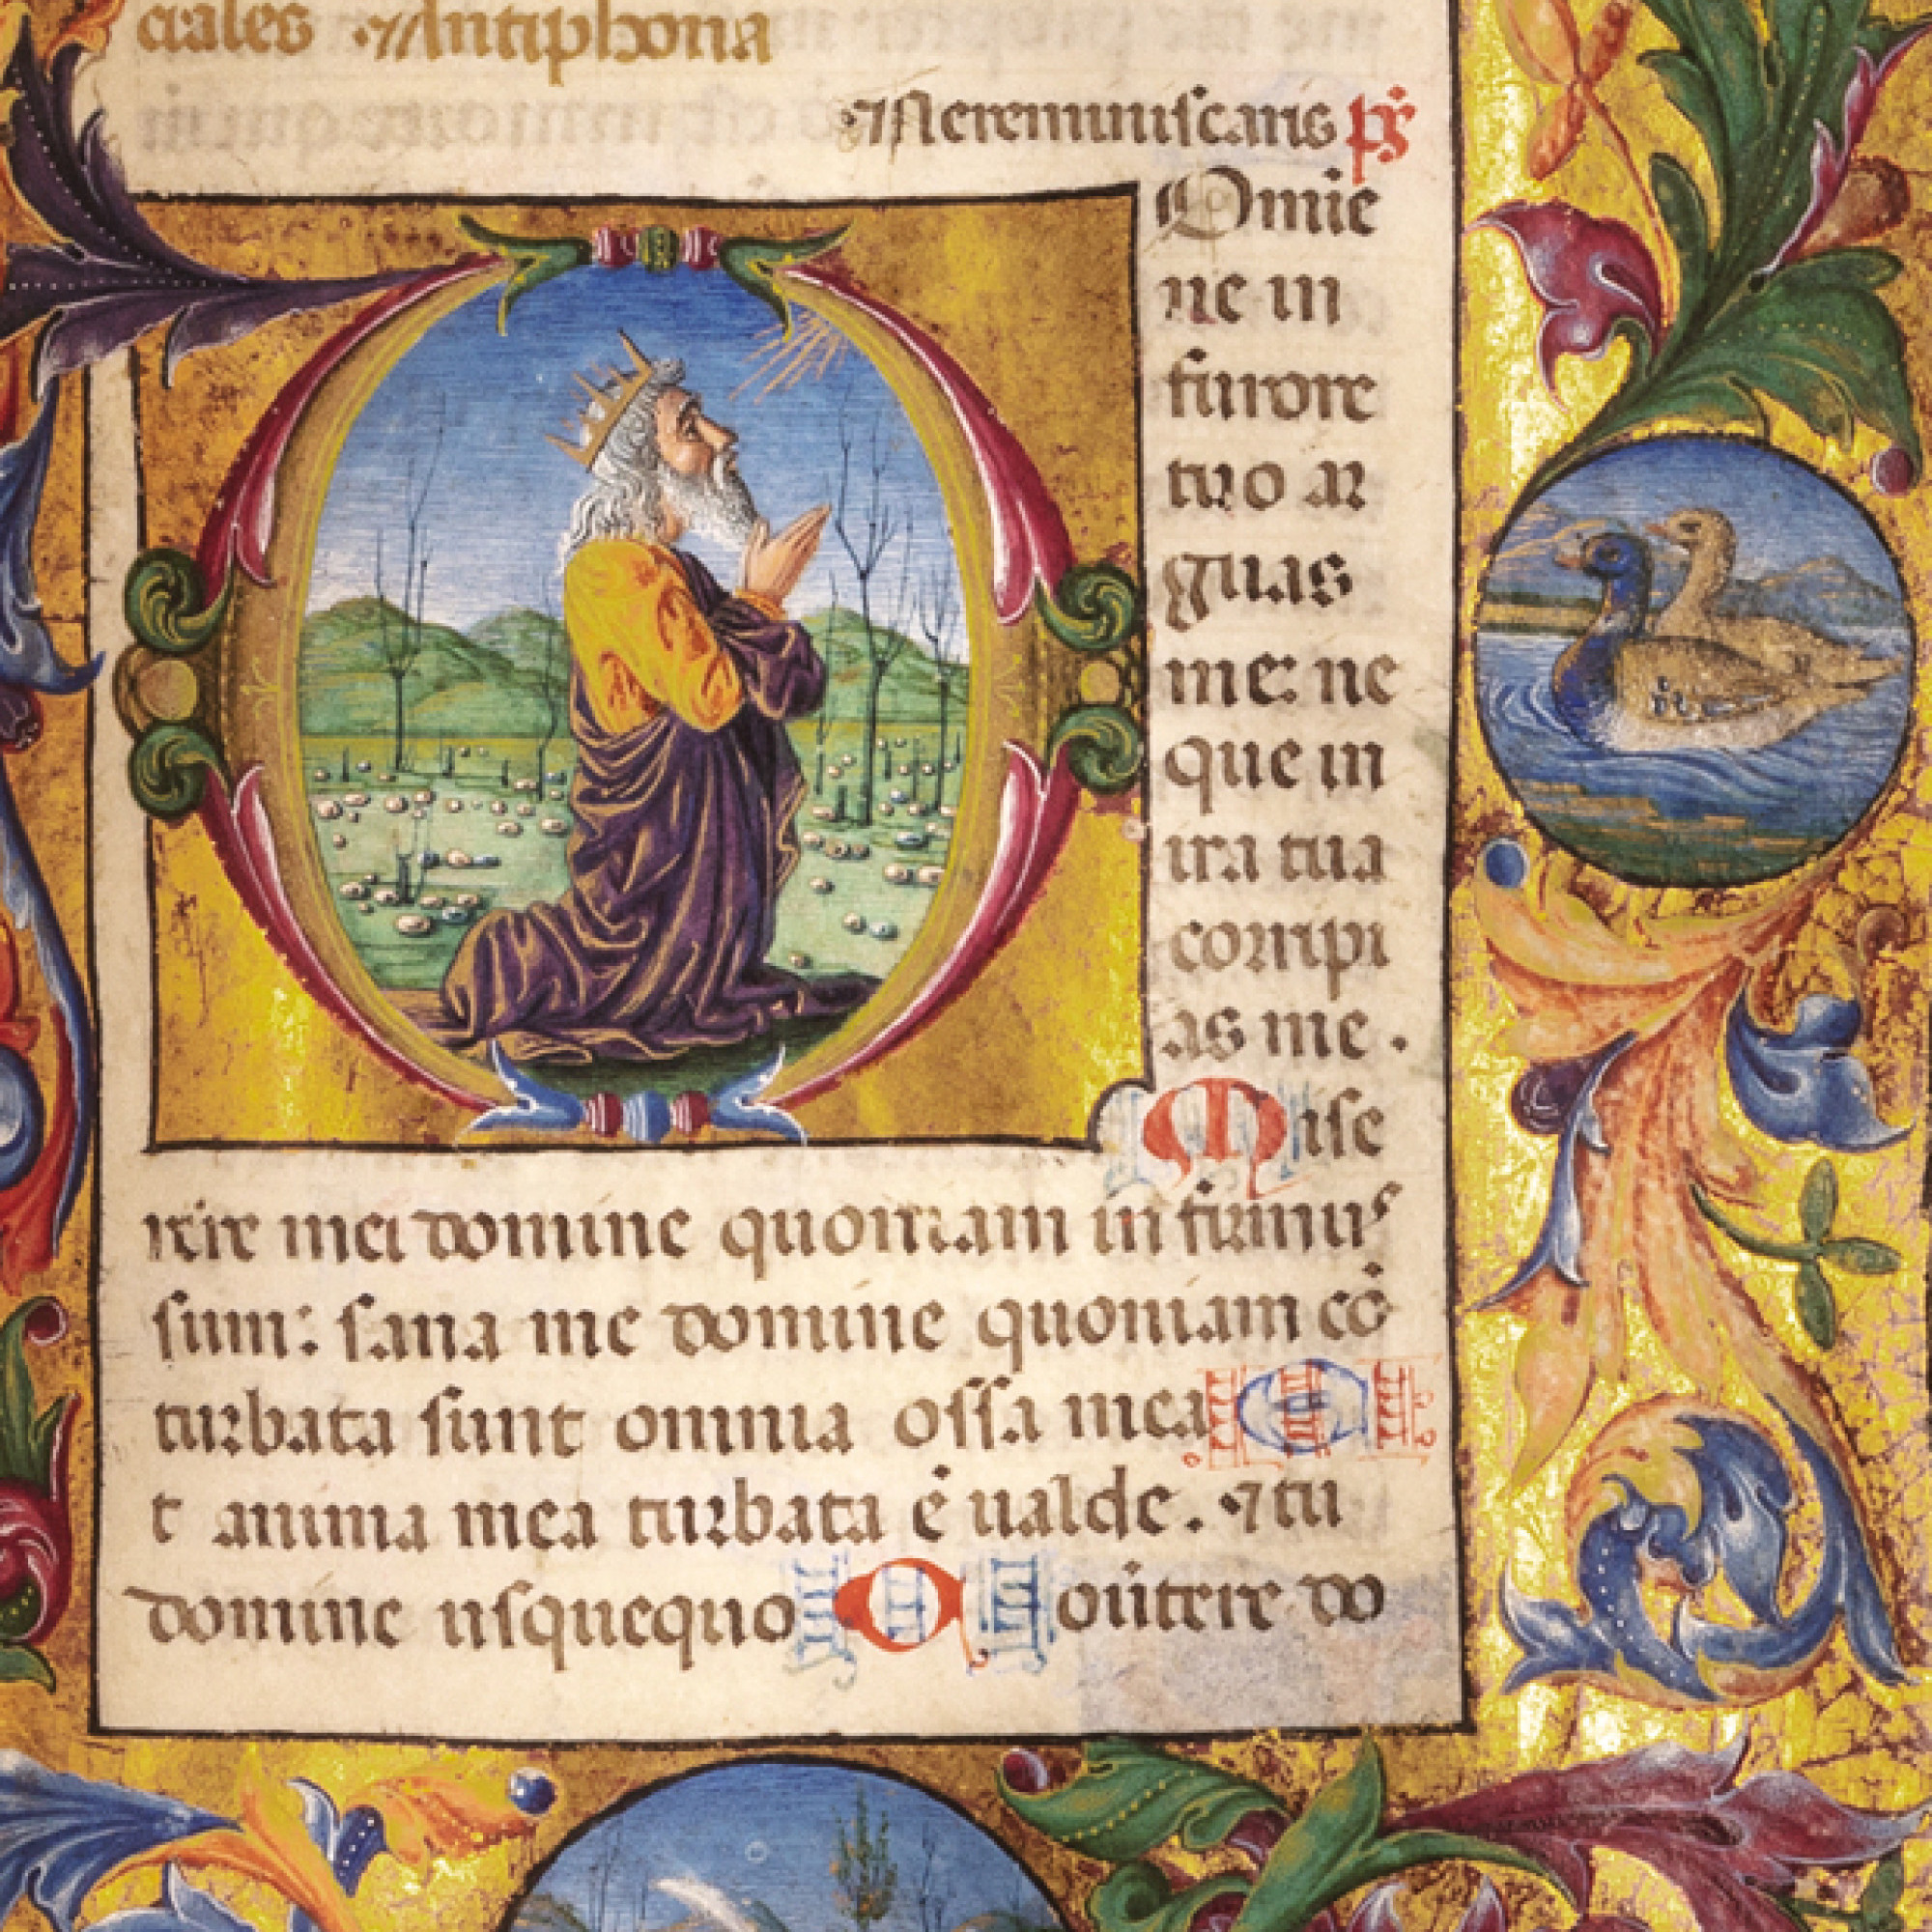 ciales Antiphona
Nereminiscaris ps̄
Omie
ne in
furore
tuo ar
guas
me: ne
que in
ira tua
corripi
as me.
Mise
rere mei domine quoniam in firmus
sum: sana me domine quoniam cō
turbata sunt omnia ossa mea E
t anima mea turbata ē ualde. 7 tu
domine usquequo Conūtere do